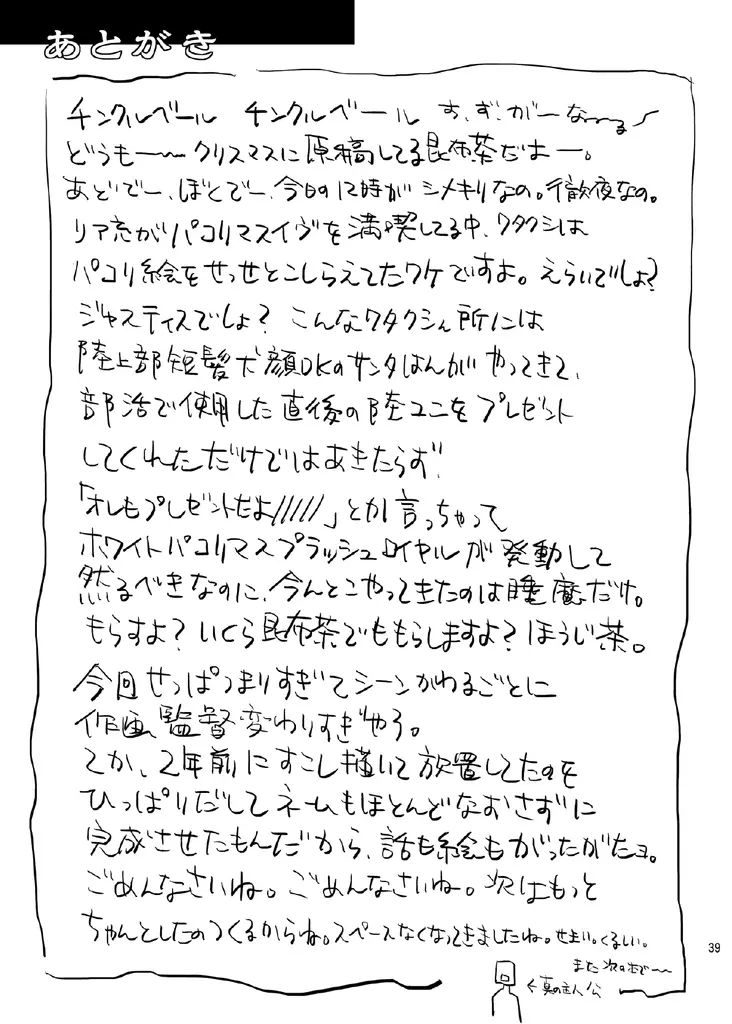 あとがき
チンクルベール チンクルベール す、ず、がーなーーるー
どうもー〜クリスマスに原稿してる昆布茶だよー。
あどでー、ぼとでー、今日の12時がシメキリなの。行徹夜なの。
リア充がパコリマスイヴを満喫してる中、ワタクシは
パコリ絵をせっせとこしらえてたワケですよ。えらいでしょ?
ジャスティスでしょ? こんなワタクシん所には
陸上部短髪犬顔DKのサンタはんがやってきて、
部活で使用した直後の陸ユニをプレゼント
してくれただけではあきたらず、
「オレもプレゼントだよ/////」とか言っちゃって
ホワイトパコリマスプラッシュロイヤルが発動して
然るべきなのに、今んとこやってきたのは睡魔だけ。
もらすよ? いくら昆布茶でももらしますよ? ほうじ茶。
今回せっぱつまりすぎてシーンがわるごとに
作画監督変わりすぎやろ。
てか、2年前にすこし描いて放置してたのを
ひっぱりだしてネームもほとんどなおさずに
完成させたもんだから、話も絵もがったがたョ。
ごめんなさいね。ごめんなさいね。次はもっと
ちゃんとしたのつくるからね。スペースなくなってきましたね。せまい。くるしい。
また次の本で〜〜
←真の主人公
39